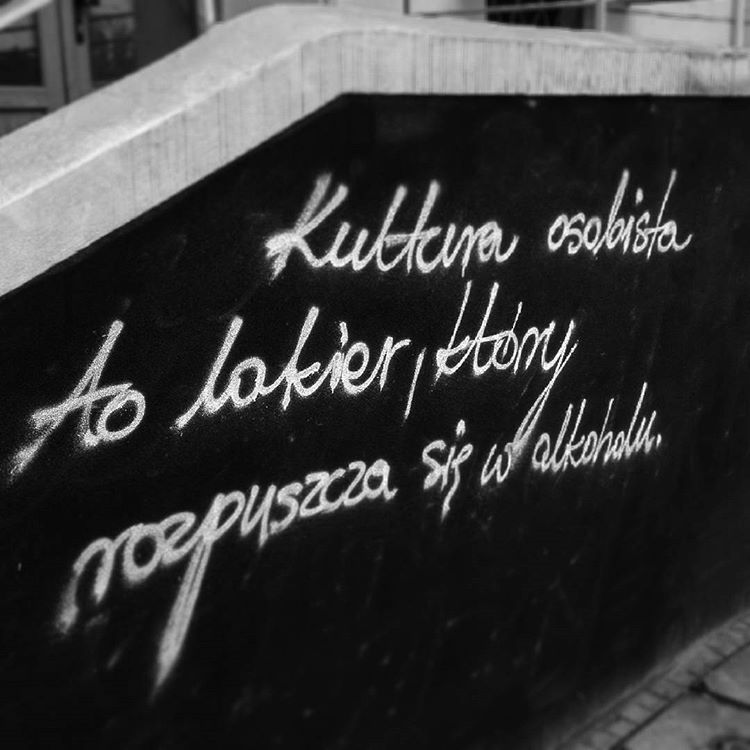 Kultura osobista
to lakier, który
rozpuszcza się w alkoholu.